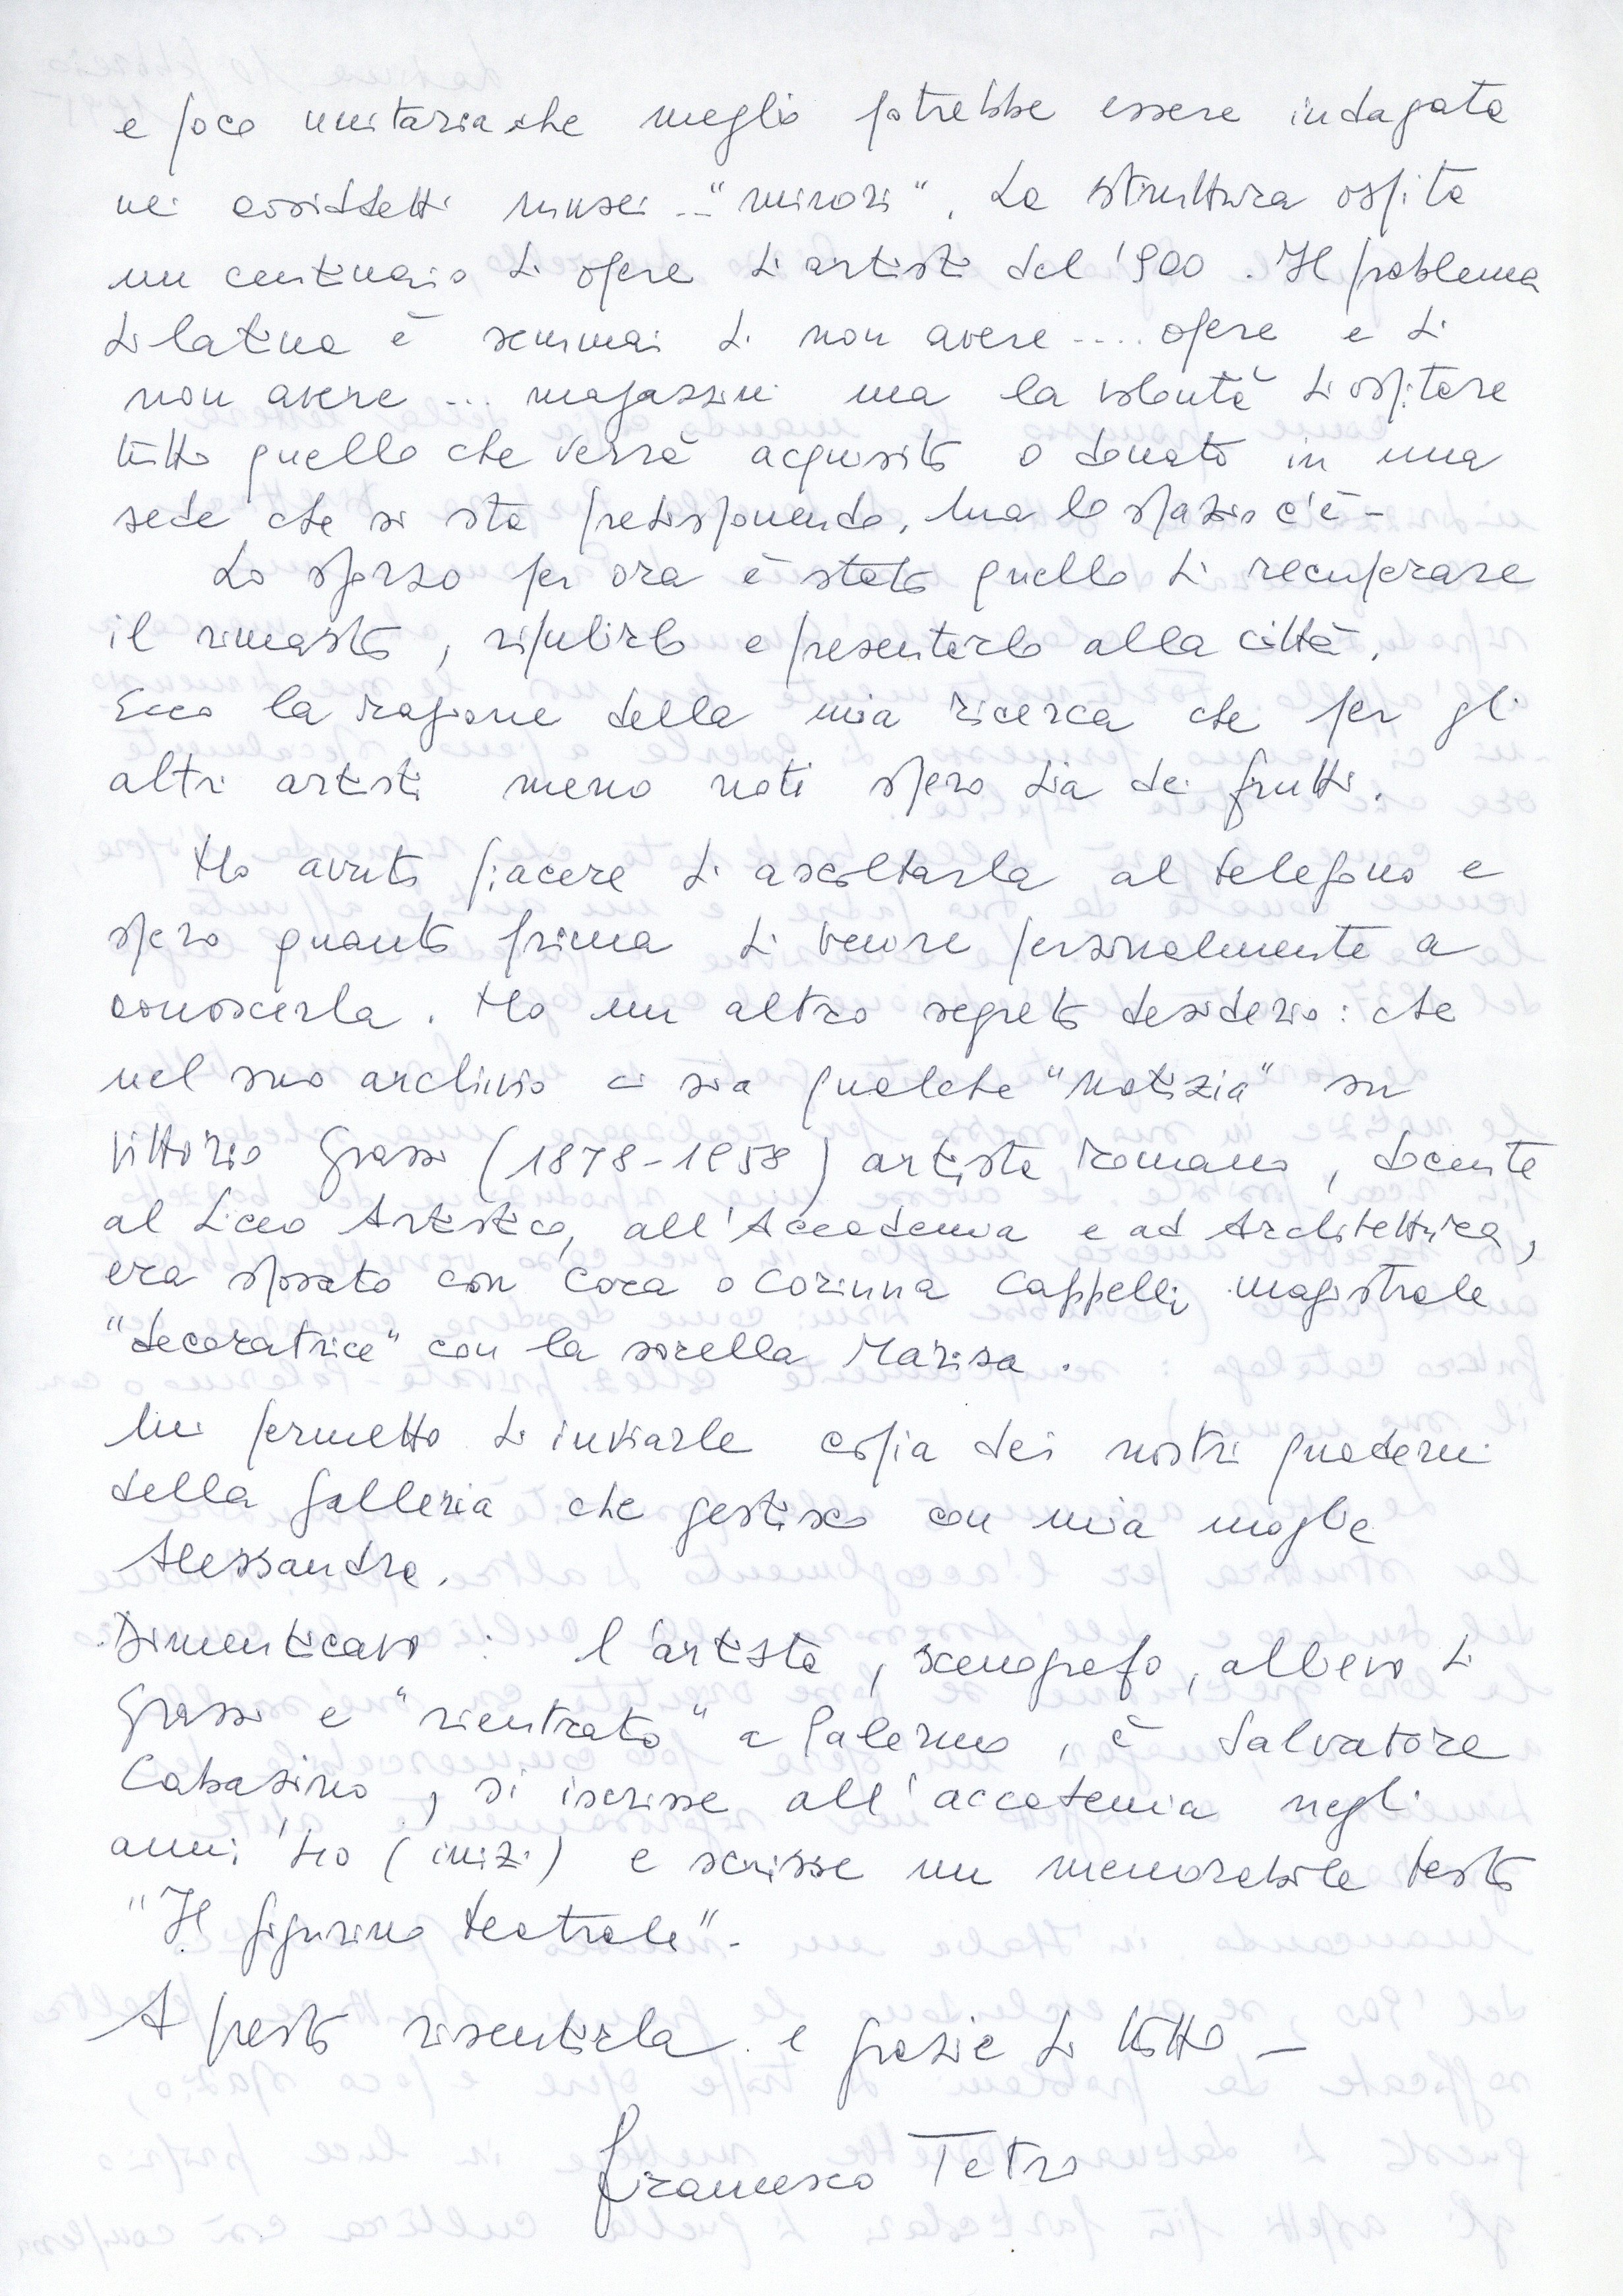 e poco unitaria che meglio potrebbe essere indagata
nei cosiddetti musei .. "minori". La struttura ospita
un centinaio di opere di artisti del '900. Il problema
di latina è semmai di non avere .... opere e di
non avere ... magazzini ma la volontà di ospitare
tutto quello che verrà acquisito o donato in una
sede che si sta predisponendo, ma lo spazio c'è -
Lo sforzo per ora è stato quello di recuperare
il rimasto, ripulirlo e presentarlo alla città.
Ecco la ragione della mia ricerca che per gli
altri artisti meno noti spero dia dei frutti.
Ho avuto piacere di ascoltarla al telefono e
spero quanto prima di venire personalmente a
conoscerla. Ho un altro segreto desiderio: che
nel suo archivio ci sia qualche "notizia" su
Vittorio Grassi (1878-1958) artista romano, docente
al Liceo Artistico, all'Accademia e ad Architettura,
era sposato con Cora o Corinna Cappelli, magistrale
"decoratrice" con la sorella Marisa.
Mi permetto di inviarle copia dei nostri quaderni
della Galleria che gestisco con mia moglie
Alessandra.
Dimenticavo : l'artista, scenografo, allievo di
Grassi e "rientrato" a Palermo, è Salvatore
Cabasino, si iscrisse all'accademia negli
anni '40 (inizi) e scrisse un memorabile testo
"Il figurino teatrale" -
A presto risentirla e grazie di tutto -
Francesco Tetro